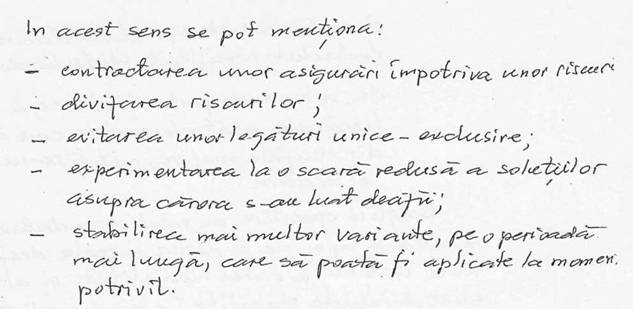 In acest sens se pot menționa:
- contractarea unor asigurări împotriva unor riscuri
- divizarea riscurilor;
- evitarea unor legături unice - exclusive;
- experimentarea la o scară redusă a soluțiilor
asupra cărora s-au luat decizii;
- stabilirea mai multor variante, pe o perioadă
mai lungă, care să poată fi aplicate la momen
potrivit.